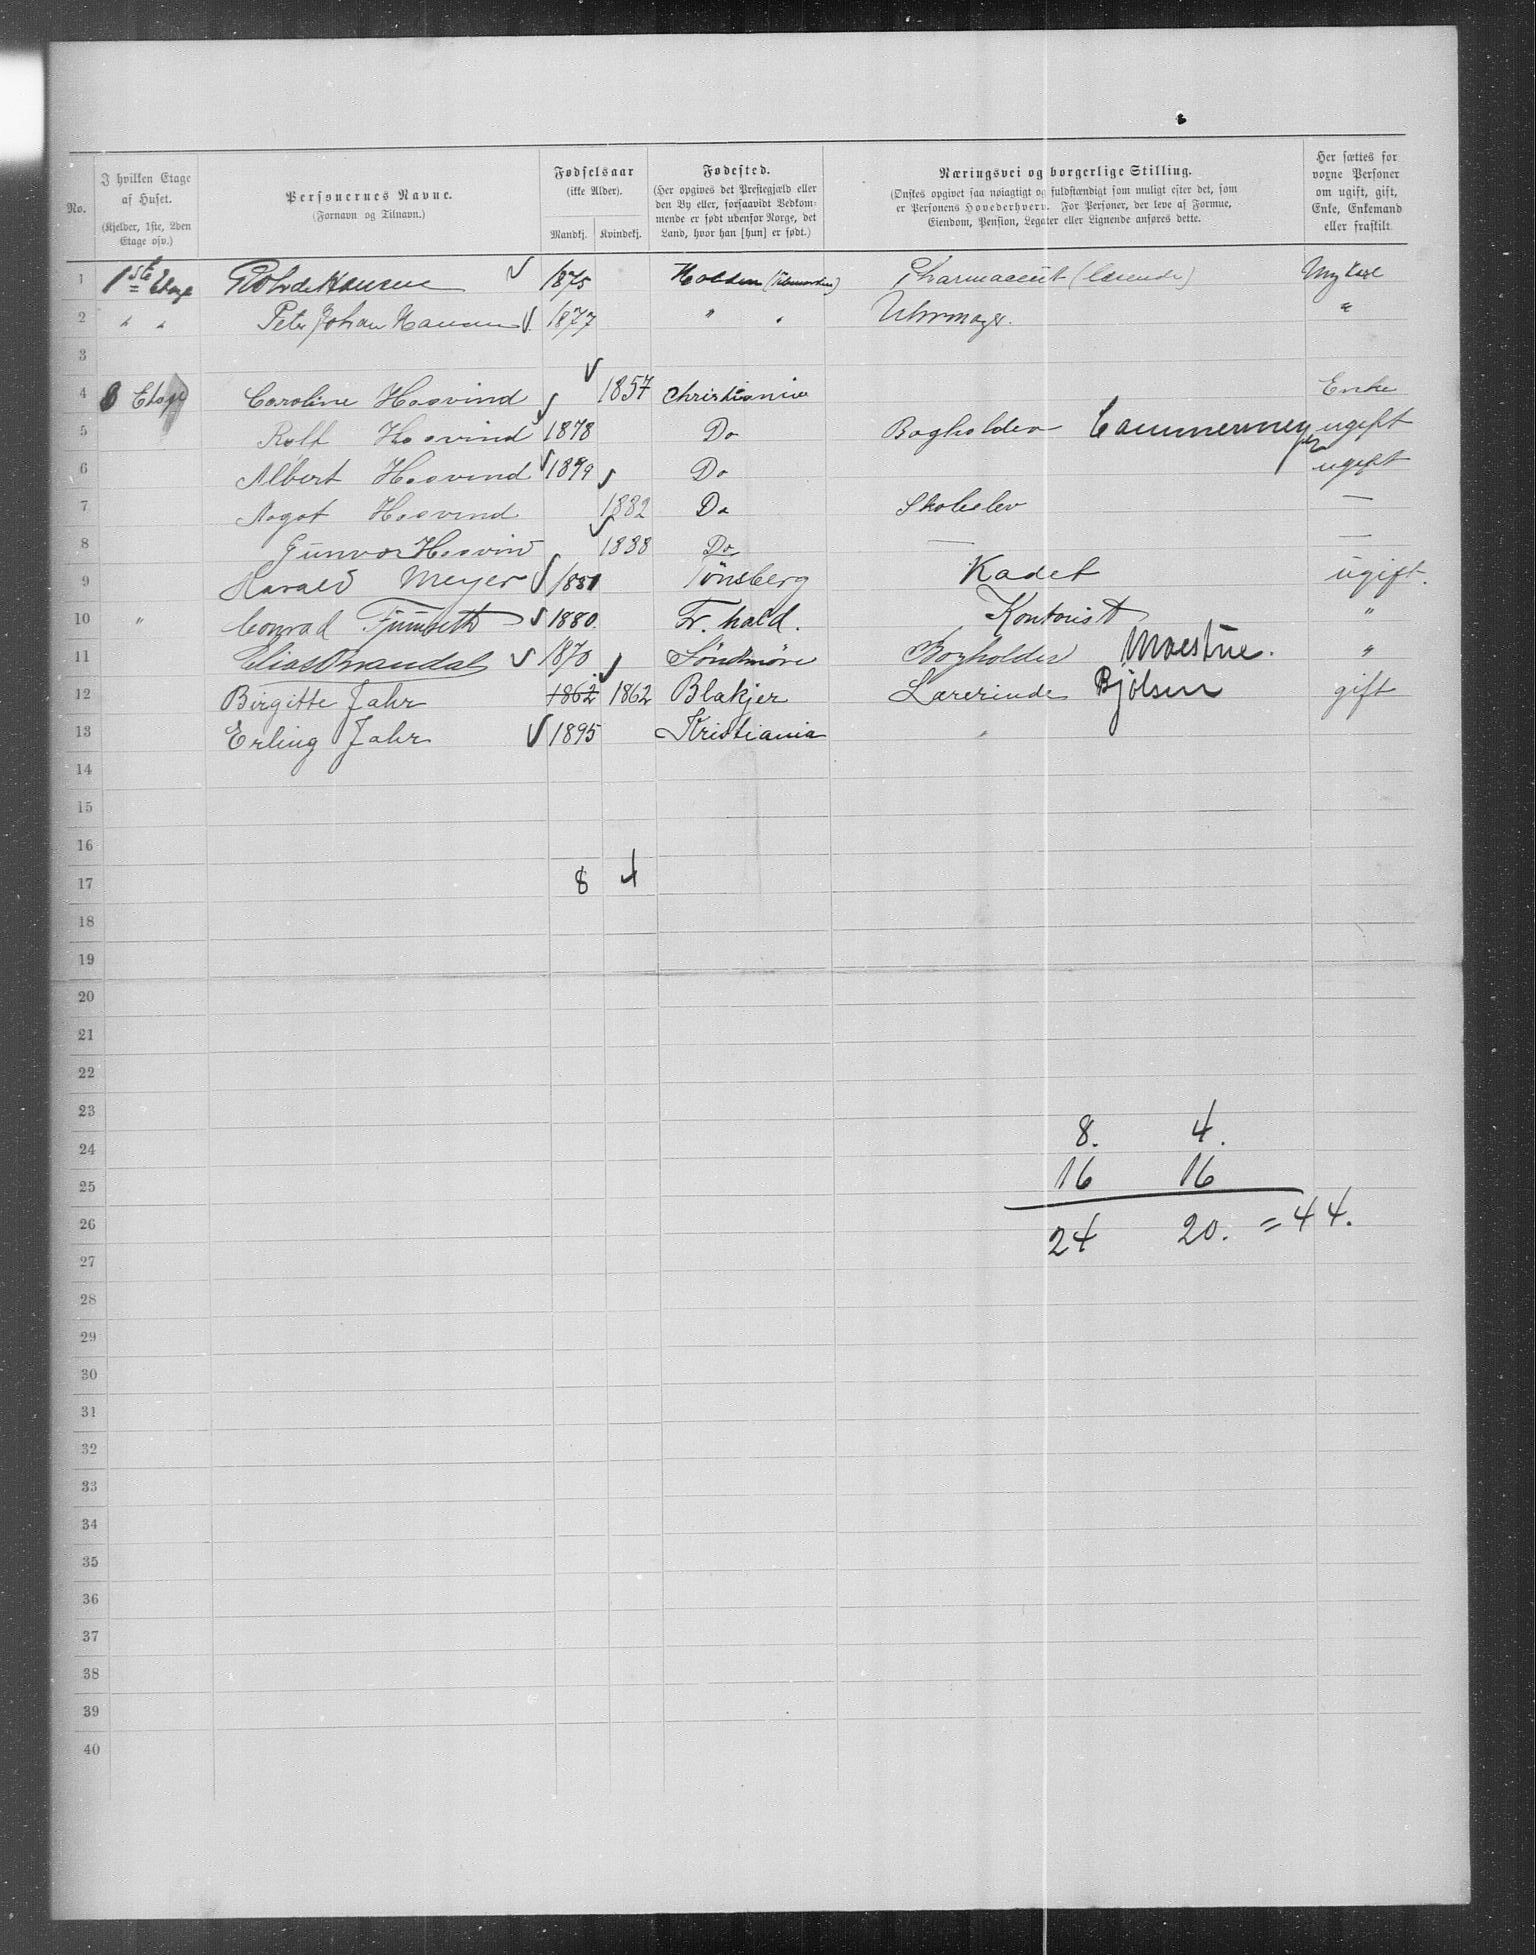 No. | I hvilken Etage af Huset. (Kjelder, 1ste, 2den Etage osv.) | Personernes Navne. (Fornavn og Tilnavn.) | Fødselsaar (ikke Alder). Mandkj. Kvindekj. | Fødested. (Her opgives det Prestegjæld eller den By eller, forsaavidt Vedkommende er født udenfor Norge, det Land, hvor han [hun] er født.) | Næringsvei og borgerlige Stilling. (Ønskes opgivet saa nøiagtigt og fuldstændigt som muligt efter det, som er Personens Hovederhverv. For Personer, der leve af Formue, Eiendom, Pension, Legater eller Lignende anføres dette.) | Her sættes for voxne Personer om ugift, gift, Enke, Enkemand eller fraskilt.
1 1ste Etage Hansen 1875 Holden Pharmaceut Ungkarl
2 " " Peter Johan Hansen 1877 " " Uhrmager. "
3
4 Etage Caroline Hosvind 1857 Christiania Enke
5 Rolf Hosvind 1878 Do Bogholder Cammermeyer ugift
6 Albert Hosvind 1879 Do ugift
7 Magot Hosvind 1882 Do Skoleelev —
8 Gunvor Hosvind 1888 Do — —
9 Harald Meyer 1881 Tönsberg Kadet ugift.
10 " Conrad 1880. Fr. hald. Kontorist "
11 Elias Brandal 1870. Söndmöre Bogholder "
12 Birgitte Jahr 1862 1862 Blakjer Lærerinde Bjölsen gift
13 Erling Jahr 1895 Kristiania "
14
15
16
17 8 4
18
19
20
21
22
23
24 8. 4.
25 16 16
26 24 20. = 44.
27
28
29
30
31
32
33
34
35
36
37
38
39
40